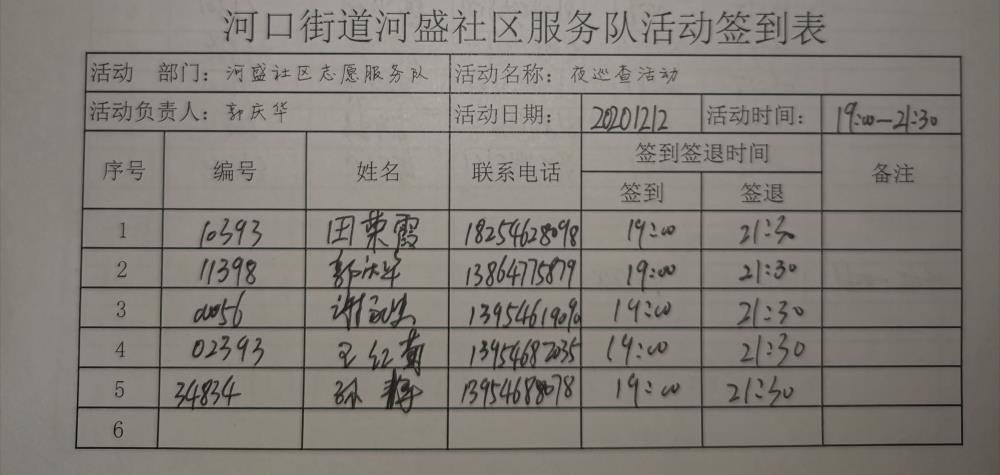 河口街道河盛社区服务队活动签到表
活动 部门：河盛社区志愿服务队 活动名称：夜巡查活动
活动负责人：郭庆华 活动日期： 20201212 活动时间： 19:00—21:30
序号 编号 姓名 联系电话 签到签退时间 备注
签到 签退
1 10393 田荣霞 18254628098 19:00 21:30
2 11398 郭庆华 13864775879 19:00 21:30
3 13954619090 19:00 21:30
4 02393 王红菊 13954687035 19:00 21:30
5 34834 孙 13954688078 19:00 21:30
6